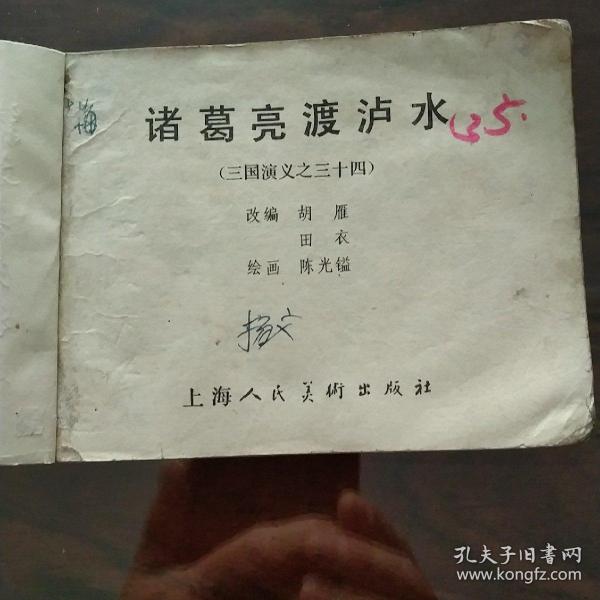 诸葛亮渡泸水
(三国演义之三十四)
改编 胡雁
田衣
绘画 陈光镒
上海人民美術出版社
孔夫子旧書网
www.kongfz.com